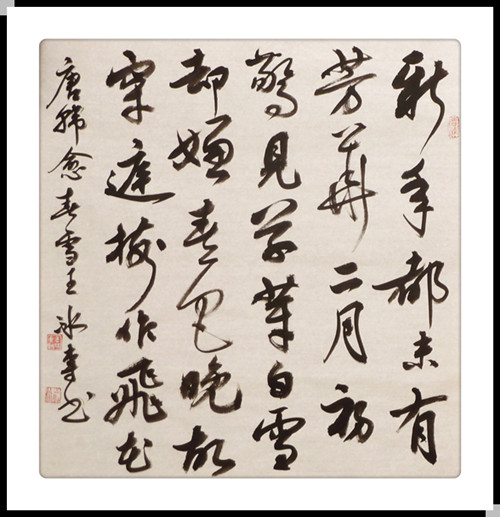 新年都未有
芳華二月初
驚見草芽白雪
却嫌春色晚故
穿庭樹作飛花
唐韓愈春雪王冰書